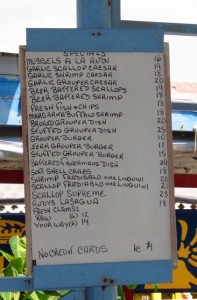 SPECIALS
MUSSELS A LA AJDY 16
GARLIC SCALLOP CAESAR 19
GARLIC SHRIMP CAESAR 18
GARLIC GROUPER CAESAR 20
BEER BATTERED SCALLOPS 19
BEER BATTERED SHRIMP 18
FRESH FISH & CHIPS 18
MARGARITA BUFFALO SHRIMP 18
BROILED GROUPER DISH 20
STUFFED GROUPER DISH 25
GROUPER BURGER 10
JERK GROUPER BURGER 11
STUFFED GROUPER BURGER 15
BATTERED FISHERMANS DISH 24
SOFT SHELL CRABS 18
SHRIMP FRADIABLO OVER LINGUINI 20
SCALLOP FRADIABLO OVER LINGUINI 21
SCALLOP SUPREME 23
AUDYS LASAGNA 18
FRESH CLAMS:
RAW (6) 12
YOUR WAY (6) 14
NO CREDIT CARDS